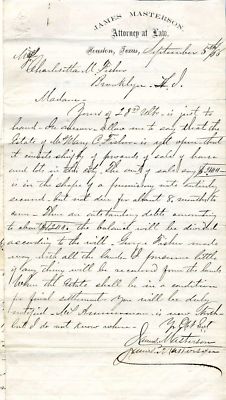 JAMES MASTERSON,
Attorney at Law.
Houston, Texas, September 5th
Charlotte M. Fisher
Brooklyn L. I.
Madam
Yours of 28th Ulto. is just to
hand. In answer allow me to say that the
Estate of Mary C. Fisher is still open that
it consists chiefly of proceeds of sale of house
and lot in this city. The sale
is in the shape of a promissory note entirely
secured, but not due for about 8 months
There are outstanding debts amounting
to about the balance will be divided
according to the will. George Fisher made
away with all the lands. I presume little
if any thing will be recovered from the lands.
When the Estate shall be in a condition
for final settlement you will be duly
notified. Mr. is now North
but I do not know where.
James Masterson